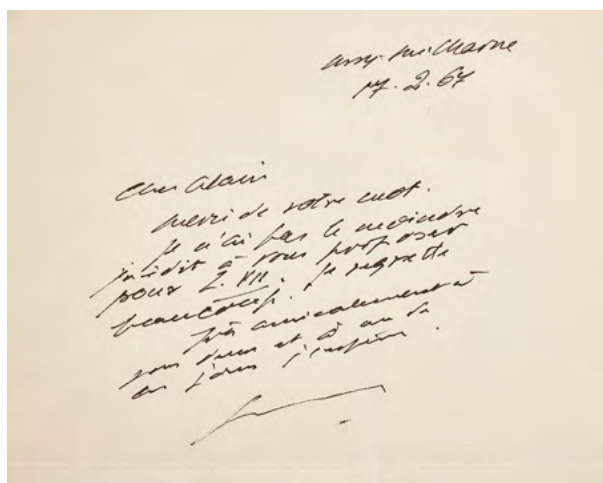 Ussy-sur-Marne
17. 2. 67
Cher Alain
merci de votre mot.
Je n'ai pas le moindre
inédit à vous proposer
pour 2. VII. Je regrette
beaucoup.
Très amicalement à
vous deux et à un de
ces jours j'espère.